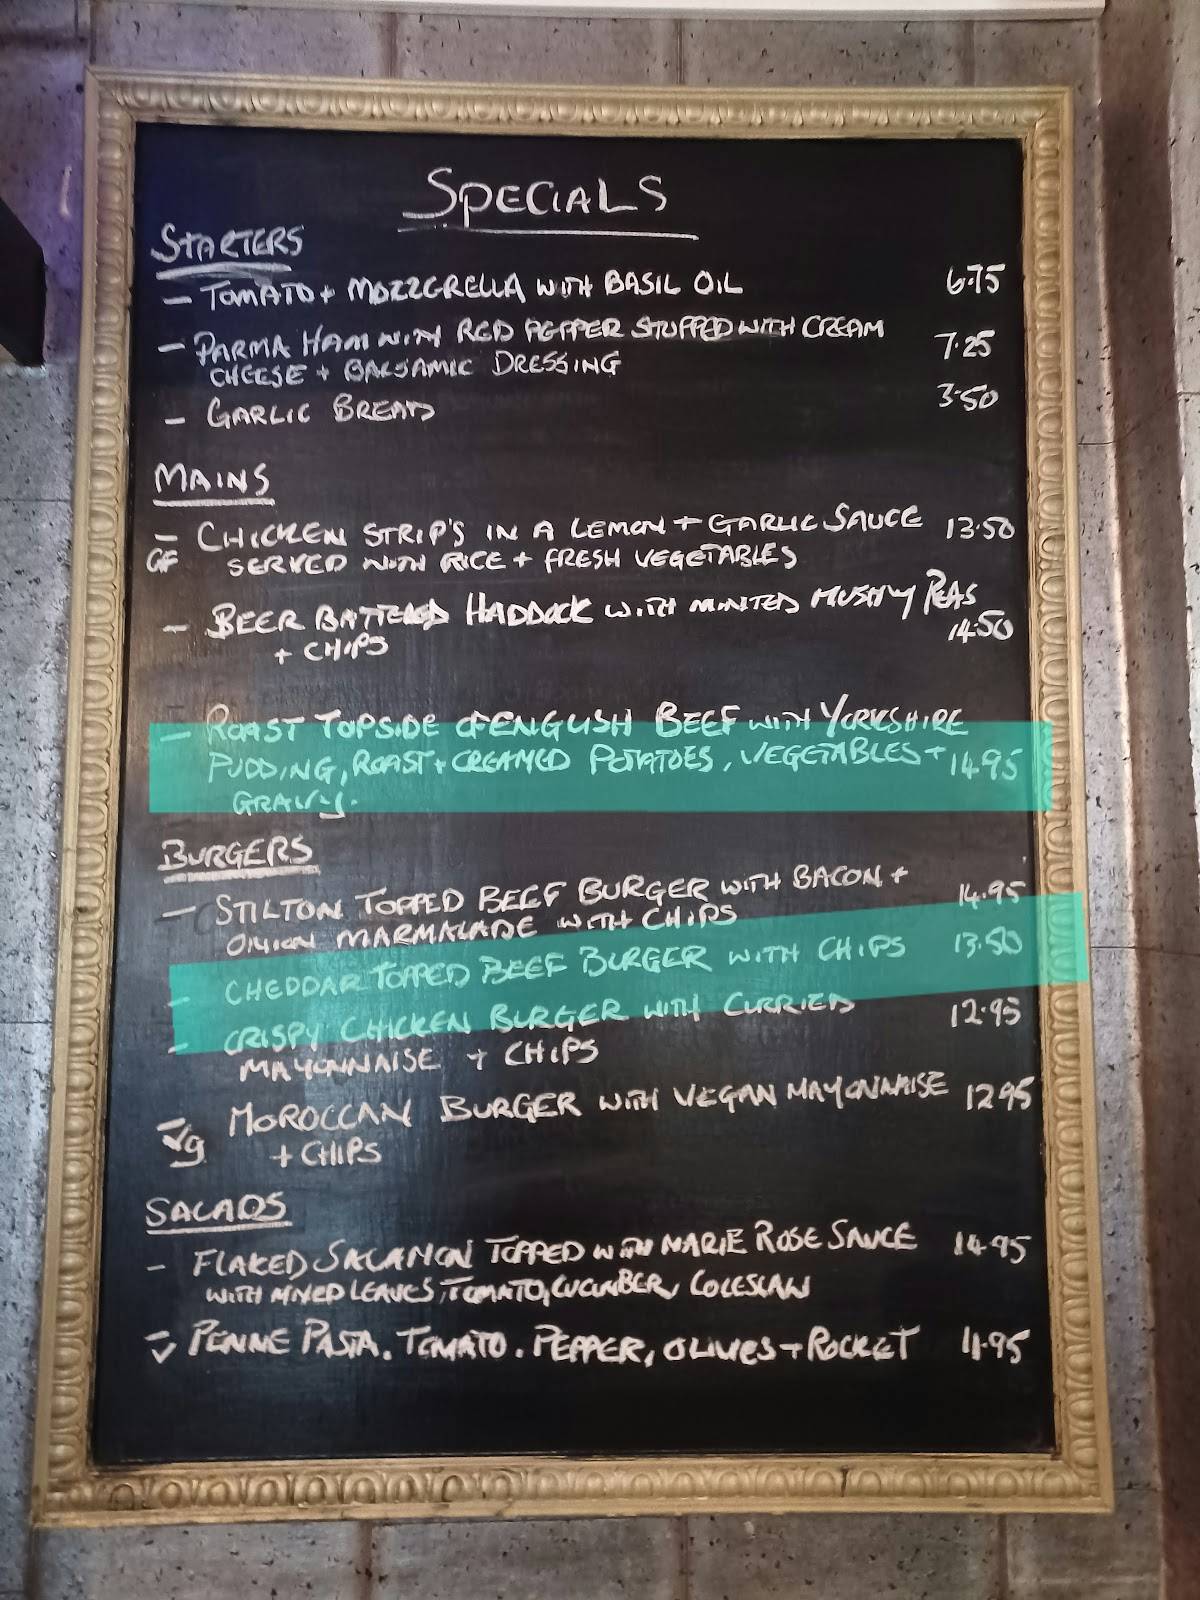 SPECIALS
STARTERS
- TOMATO + MOZZERELLA WITH BASIL OIL 6.75
- PARMA HAM WITH RED PEPPER STUFFED WITH CREAM
CHEESE + BALSAMIC DRESSING 7.25
- GARLIC BREAD 3.50
MAINS
- CHICKEN STRIP'S IN A LEMON + GARLIC SAUCE 13.50
GF SERVED WITH RICE + FRESH VEGETABLES
- BEER BATTERED HADDOCK WITH MINTED MUSHY PEAS
+ CHIPS 14.50
- ROAST TOPSIDE OF ENGLISH BEEF WITH YORKSHIRE
PUDDING, ROAST + CREAMED POTATOES, VEGETABLES + 14.95
GRAVY.
BURGERS
- STILTON TOPPED BEEF BURGER WITH BACON + 14.95
ONION MARMALADE WITH CHIPS
- CHEDDAR TOPPED BEEF BURGER WITH CHIPS 13.50
- CRISPY CHICKEN BURGER WITH CURRIED 12.95
MAYONNAISE + CHIPS
- MOROCCAN BURGER WITH VEGAN MAYONNAISE 12.95
Vg + CHIPS
SALADS
- FLAKED SALAMON TOPPED WITH MARIE ROSE SAUCE 14.95
WITH MIXED LEAVES, TOMATO, CUCUMBER, COLESLAW
- V PENNE PASTA. TOMATO. PEPPER, OLIVES + ROCKET 11.95